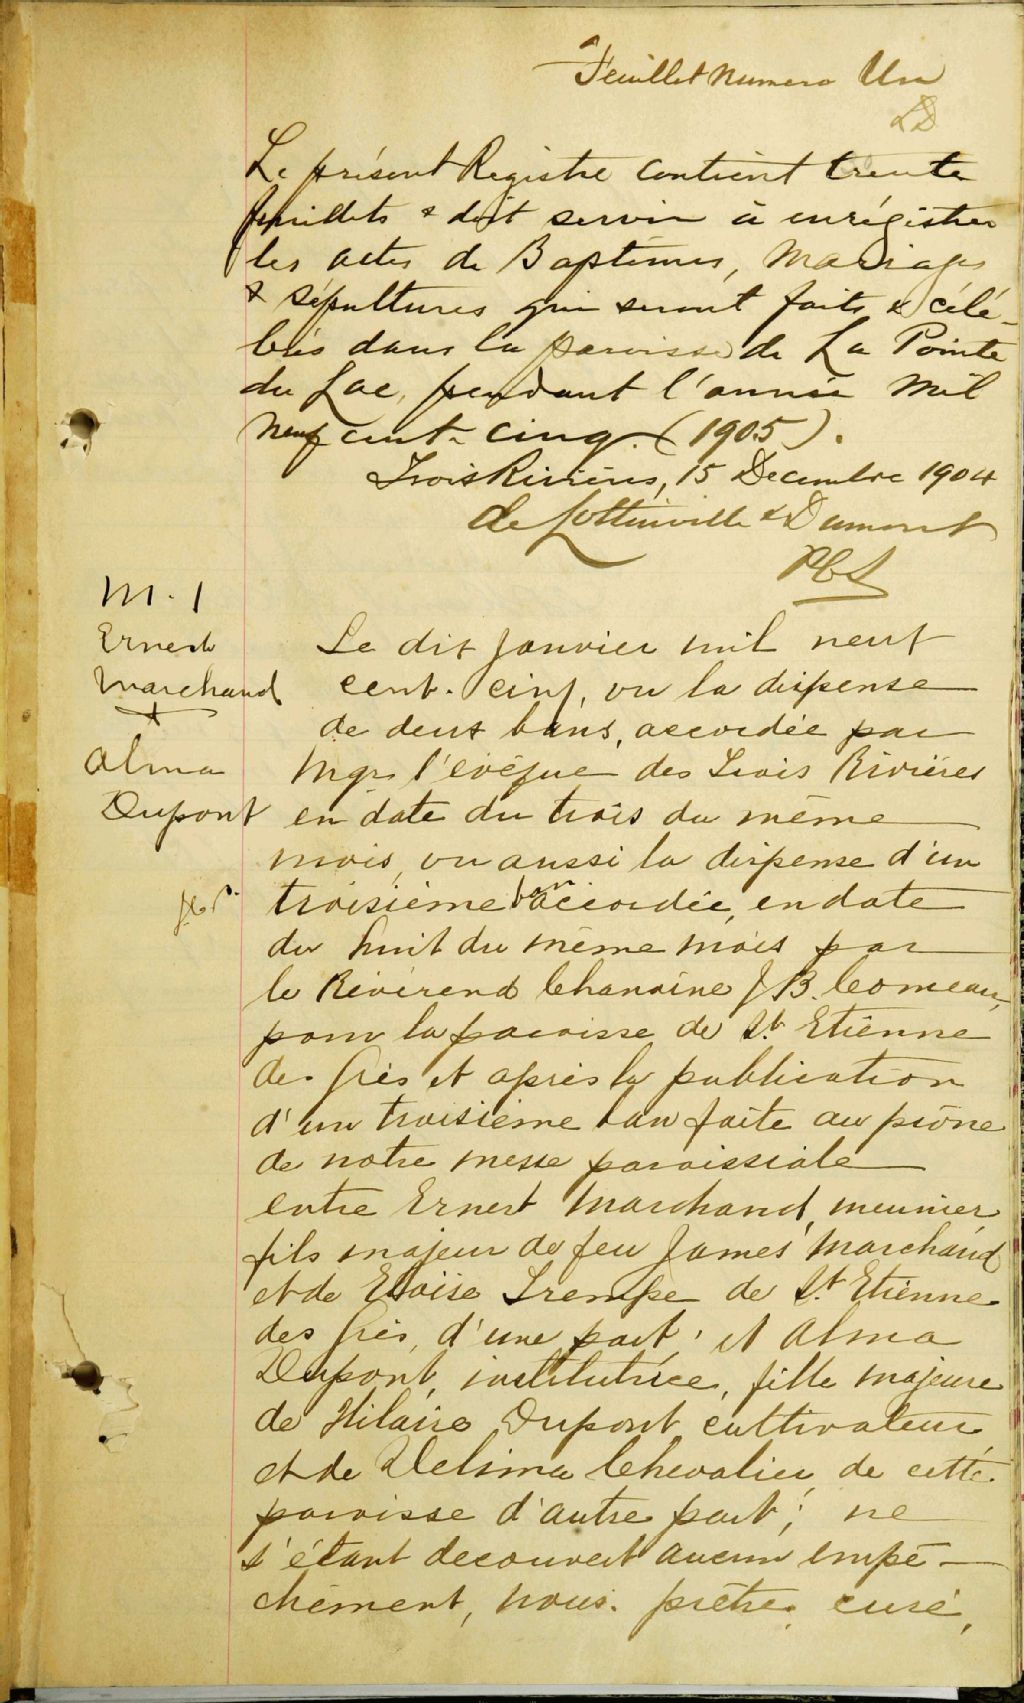 Feuillet numero Un
LD
Le présent Registre contient trente
feuillets & doit servir à enrégistrer
les actes de Baptêmes, Mariages
& sépultures qui seront faits & célé-
brés dans la paroisse de La Pointe
du Lac, pendant l'année mil
neuf cent-cinq. (1905).
Trois Rivières, 15 Decembre 1904
de Lottinville & Dumont
PCS
M. 1
Ernest
Marchand
&
Alma
Dupont
Le dix Janvier mil neuf
cent-cinq, vu la dispense
de deux bans, accordée par
Mgr l'évêque des Trois Rivières
en date du trois du même
mois, vu aussi la dispense d'un
troisième ban accordée, en date
du huit du même mois par
le Révérend Chanoine J. B. Comeau,
pour la paroisse de St. Etienne
des Grès et après la publication
d'un troisième ban faite au prône
de notre messe paroissiale
entre Ernest Marchand, meunier,
fils majeur de feu James Marchand
et de Eloise Trempe de St. Etienne
des Grès, d'une part, et Alma
Dupont, institutrice, fille majeure
de Hilaire Dupont, cultivateur
et de Delima Chevalier, de cette
paroisse d'autre part; ne
s'étant decouvert aucun empê-
chément, nous, prêtre, curé,